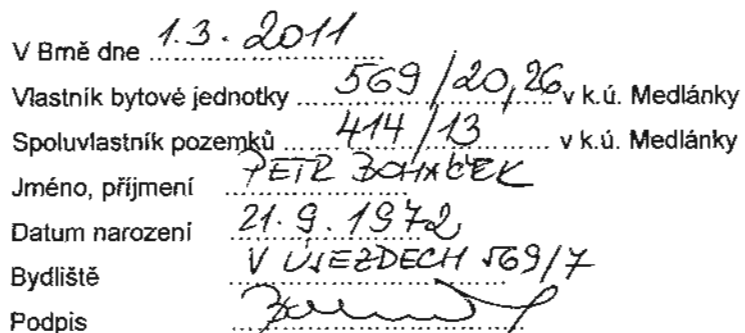 V Brně dne 1.3.2011
Vlastník bytové jednotky 569/20,26 v k.ú. Medlánky
Spoluvlastník pozemků 414/13 v k.ú. Medlánky
Jméno, příjmení PETR BOHÁČEK
Datum narození 21.9.1972
Bydliště V ÚJEZDECH 569/7
Podpis